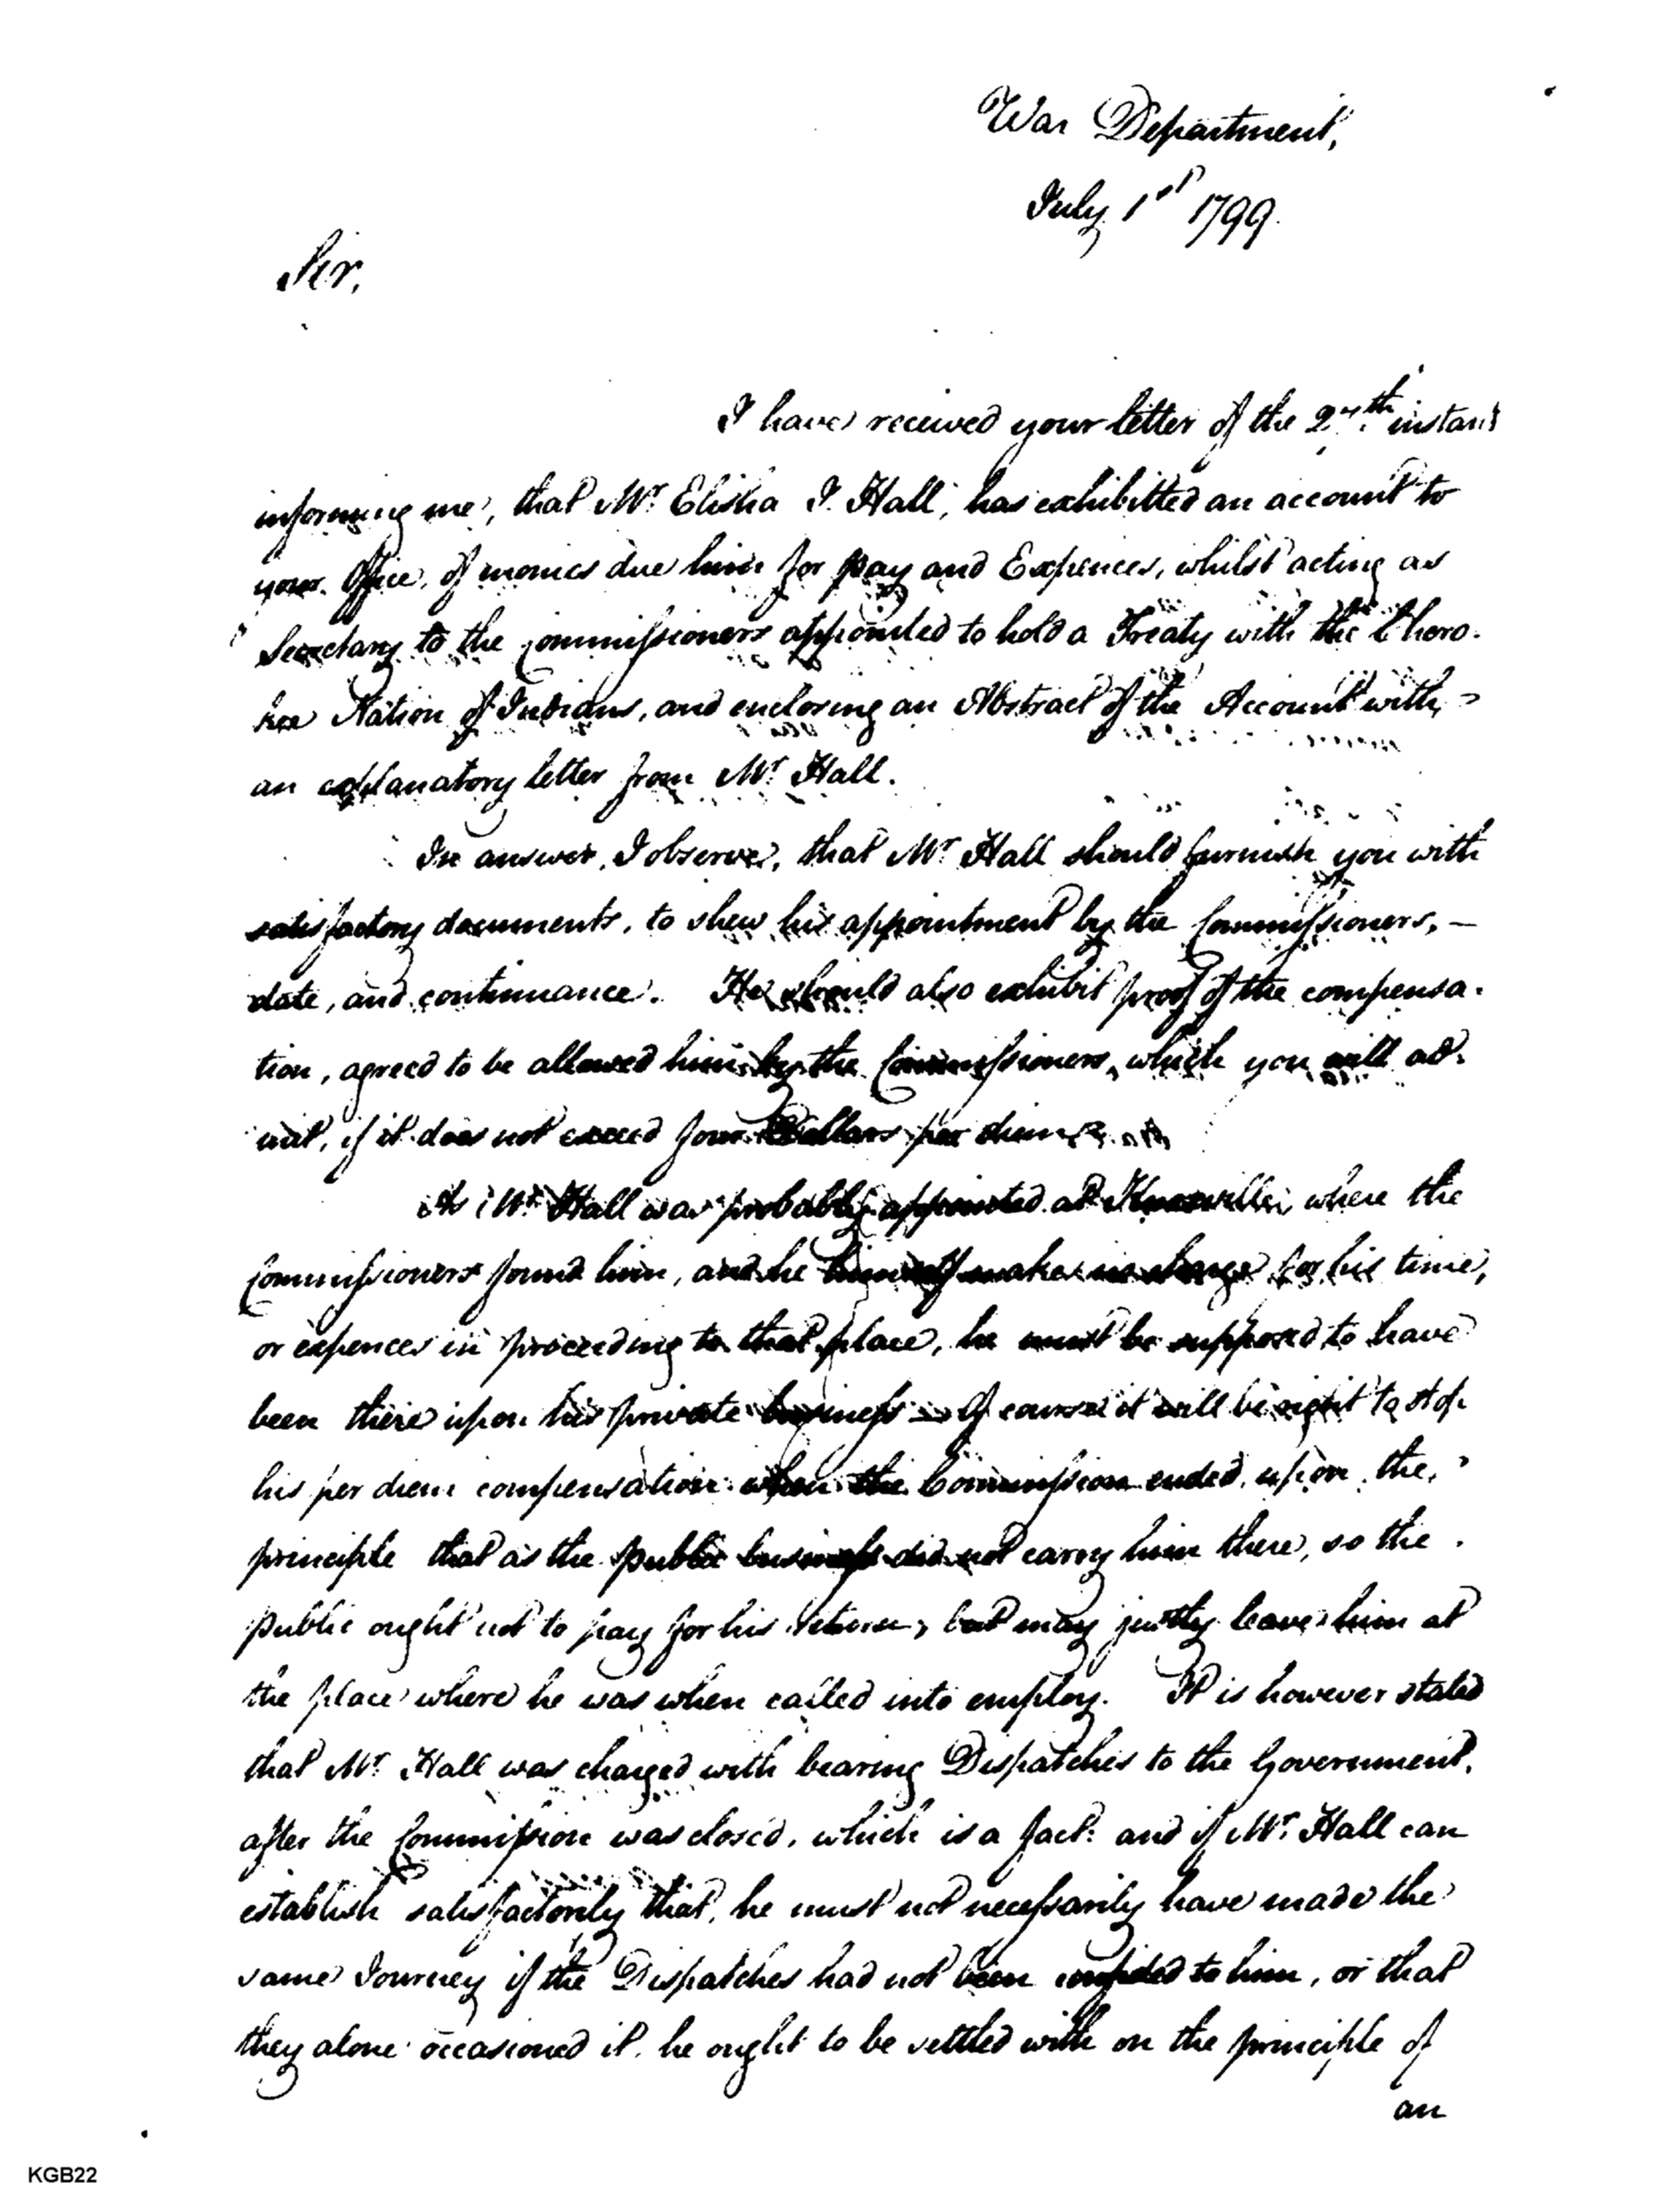 War Department,
July 1st 1799.
Sir,
I have received your letter of the 27th instant
informing me, that Mr. Elisha I. Hall, has exhibitted an account to
your Office, of monies due him for pay and Expences, whilst acting as
Secretary to the Commissioners appointed to hold a Treaty with the Chero-
kee Nation of Indians, and enclosing an Abstract of the Account with
an explanatory letter from Mr. Hall.
In answer, I observe, that Mr Hall should furnish you with
satisfactory documents, to shew his appointment by the Commissioners, —
date, and continuance. He should also exhibit proof of the compensa-
tion, agreed to be allowed him by the Commissioners, which you will ad-
mit, if it does not exceed four Dollars per diem.
As Mr Hall was probably appointed at Knoxville, where the
Commissioners found him, and he himself makes no charge for his time,
or expences in proceeding to that place, he must be supposed to have
been there upon his private business — Of course it will be right to stop
his per diem compensation when the Commission ended, upon the
principle that as the public business did not carry him there, so the
public ought not to pay for his return, but may justly leave him at
the place where he was when called into employ. It is however stated
that Mr. Hall was charged with bearing Dispatches to the Government,
after the Commission was closed, which is a fact: and if Mr. Hall can
establish satisfactorily that, he must not necessarily have made the
same Journey if the Dispatches had not been confided to him, or that
they alone occasioned it, he ought to be settled with on the principle of
an
KGB22